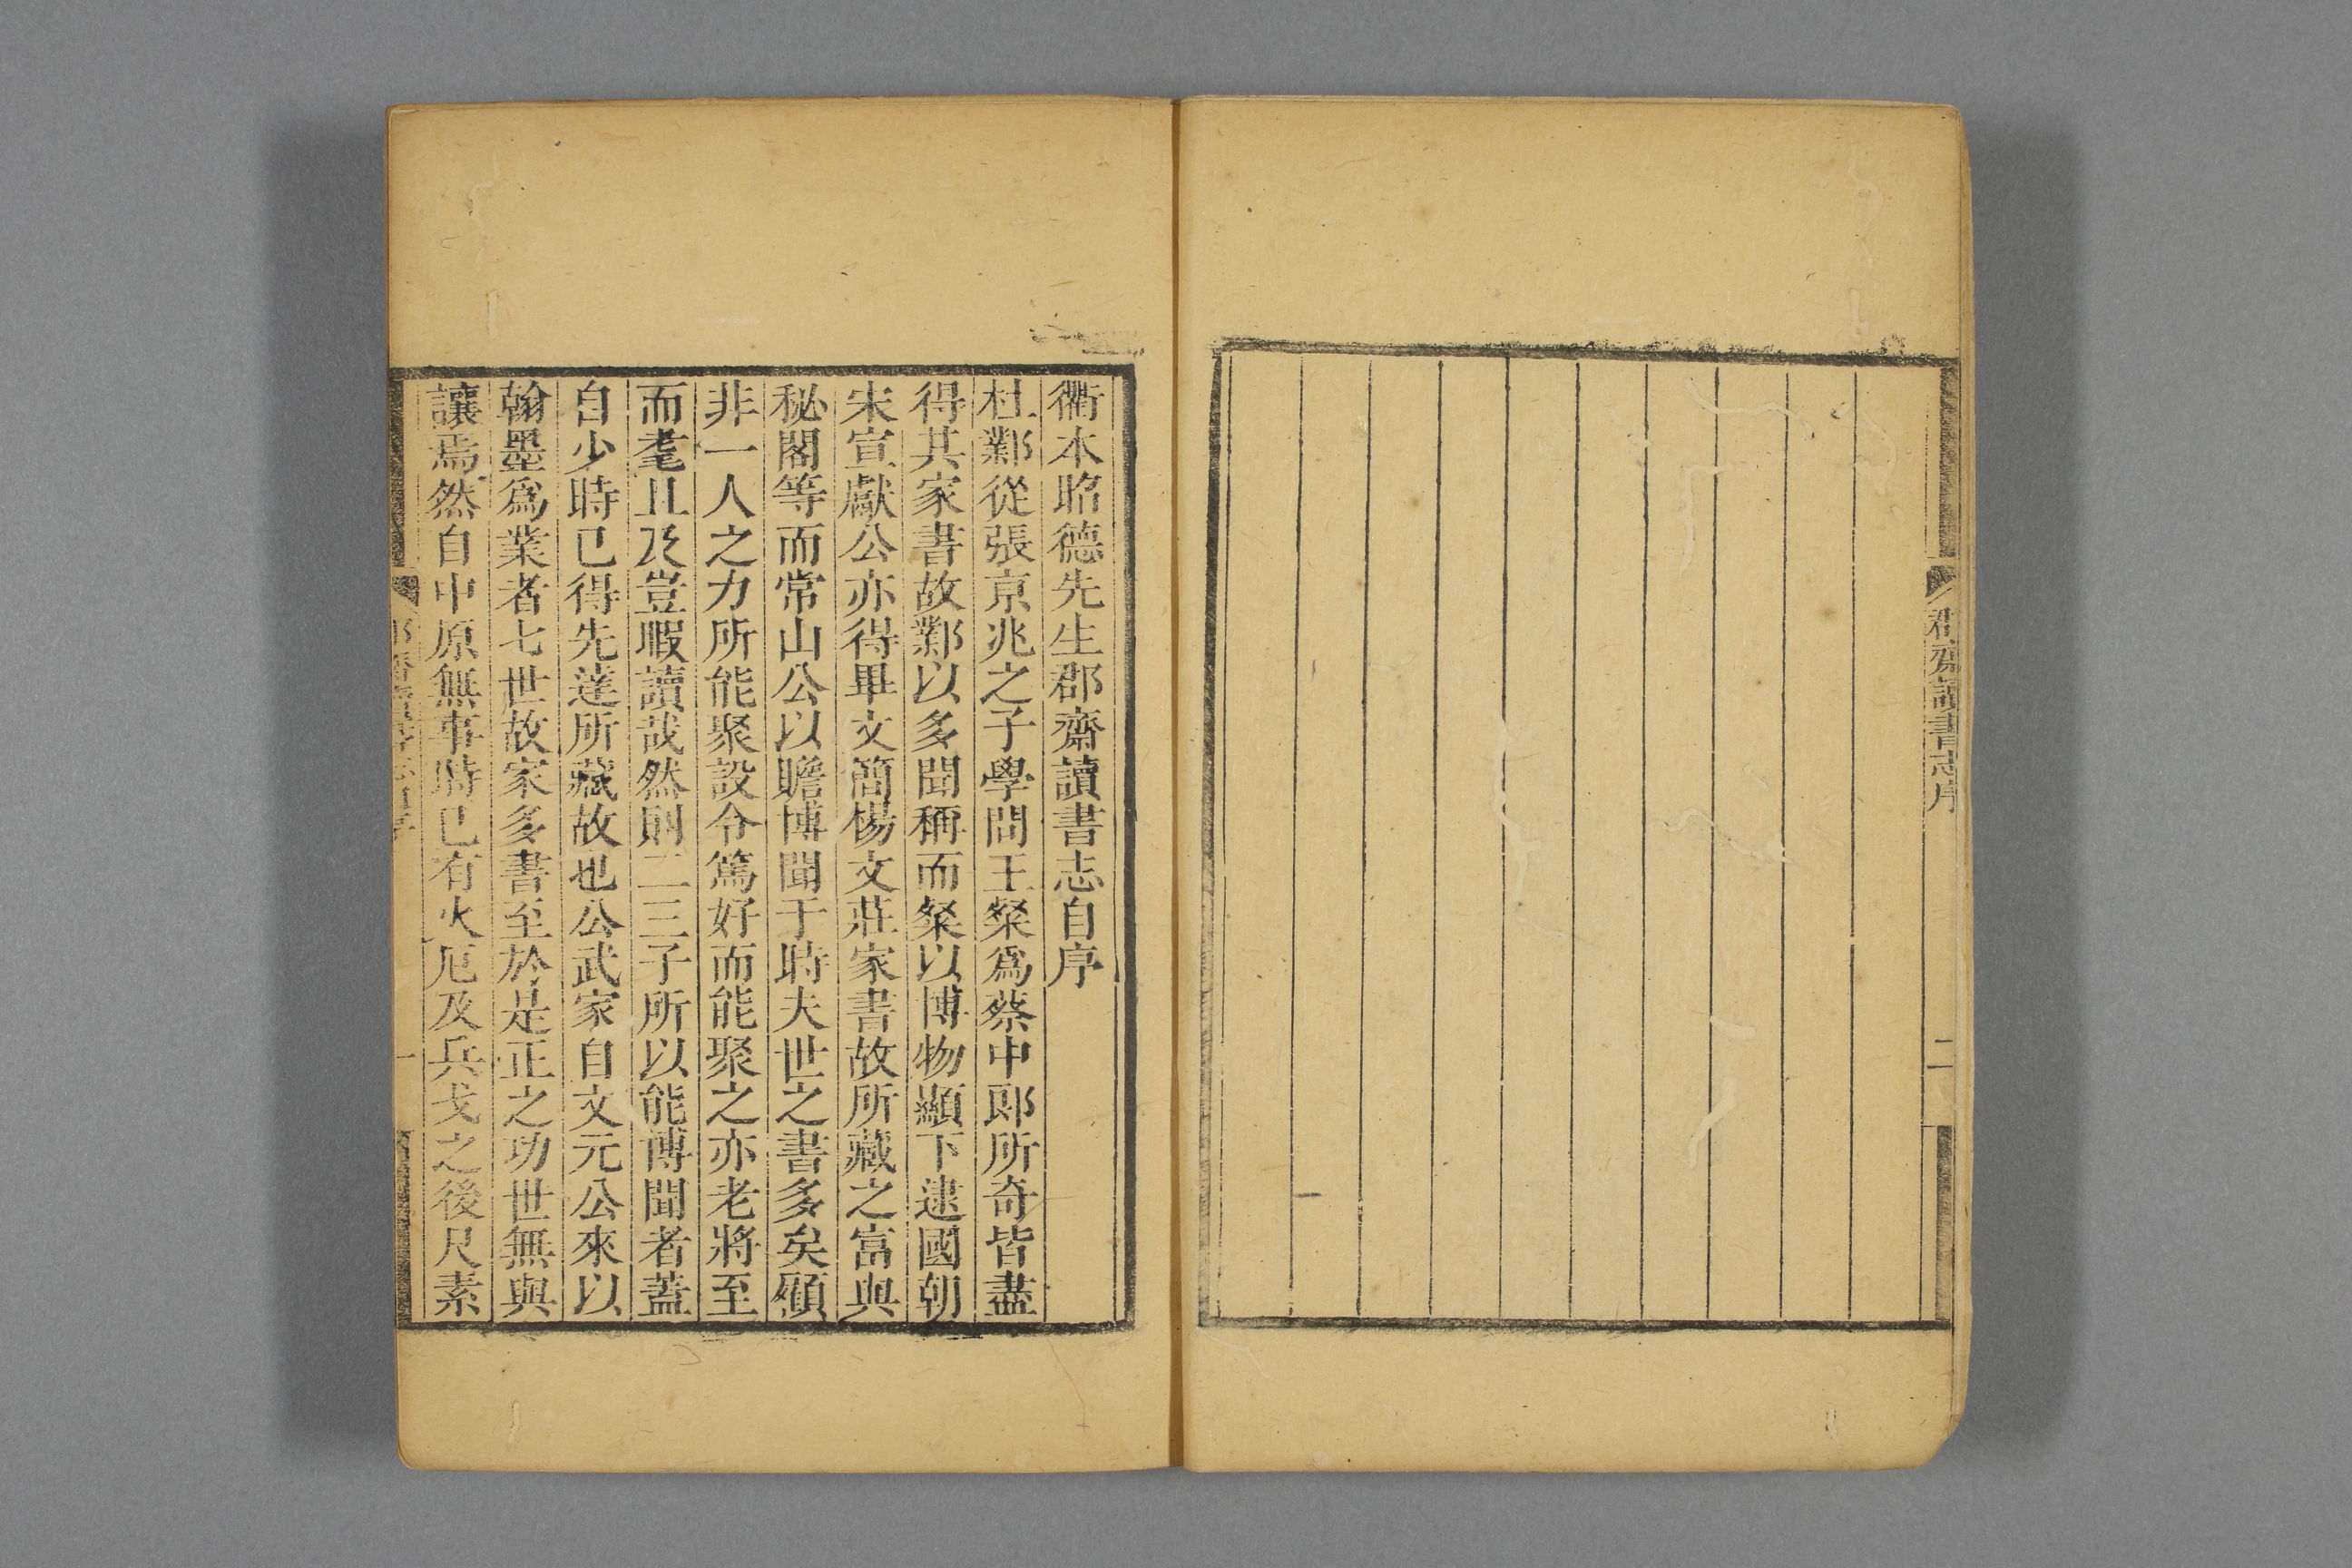 郡齋讀書志序
二
衢本昭德先生郡齋讀書志自序
杜鄴從張京兆之子學問王粲爲蔡中郎所奇皆盡
得其家書故鄴以多聞稱而粲以博物顯下逮國朝
宋宣獻公亦得畢文簡楊文莊家書故所藏之富與
秘閣等而常山公以贍博聞于時夫世之書多矣顧
非一人之力所能聚設令篤好而能聚之亦老將至
而耄且及豈暇讀哉然則二三子所以能博聞者蓋
自少時已得先達所藏故也公武家自文元公來以
翰墨爲業者七世故家多書至於是正之功世無與
讓焉然自中原無事時已有火厄及兵戈之後尺素
一